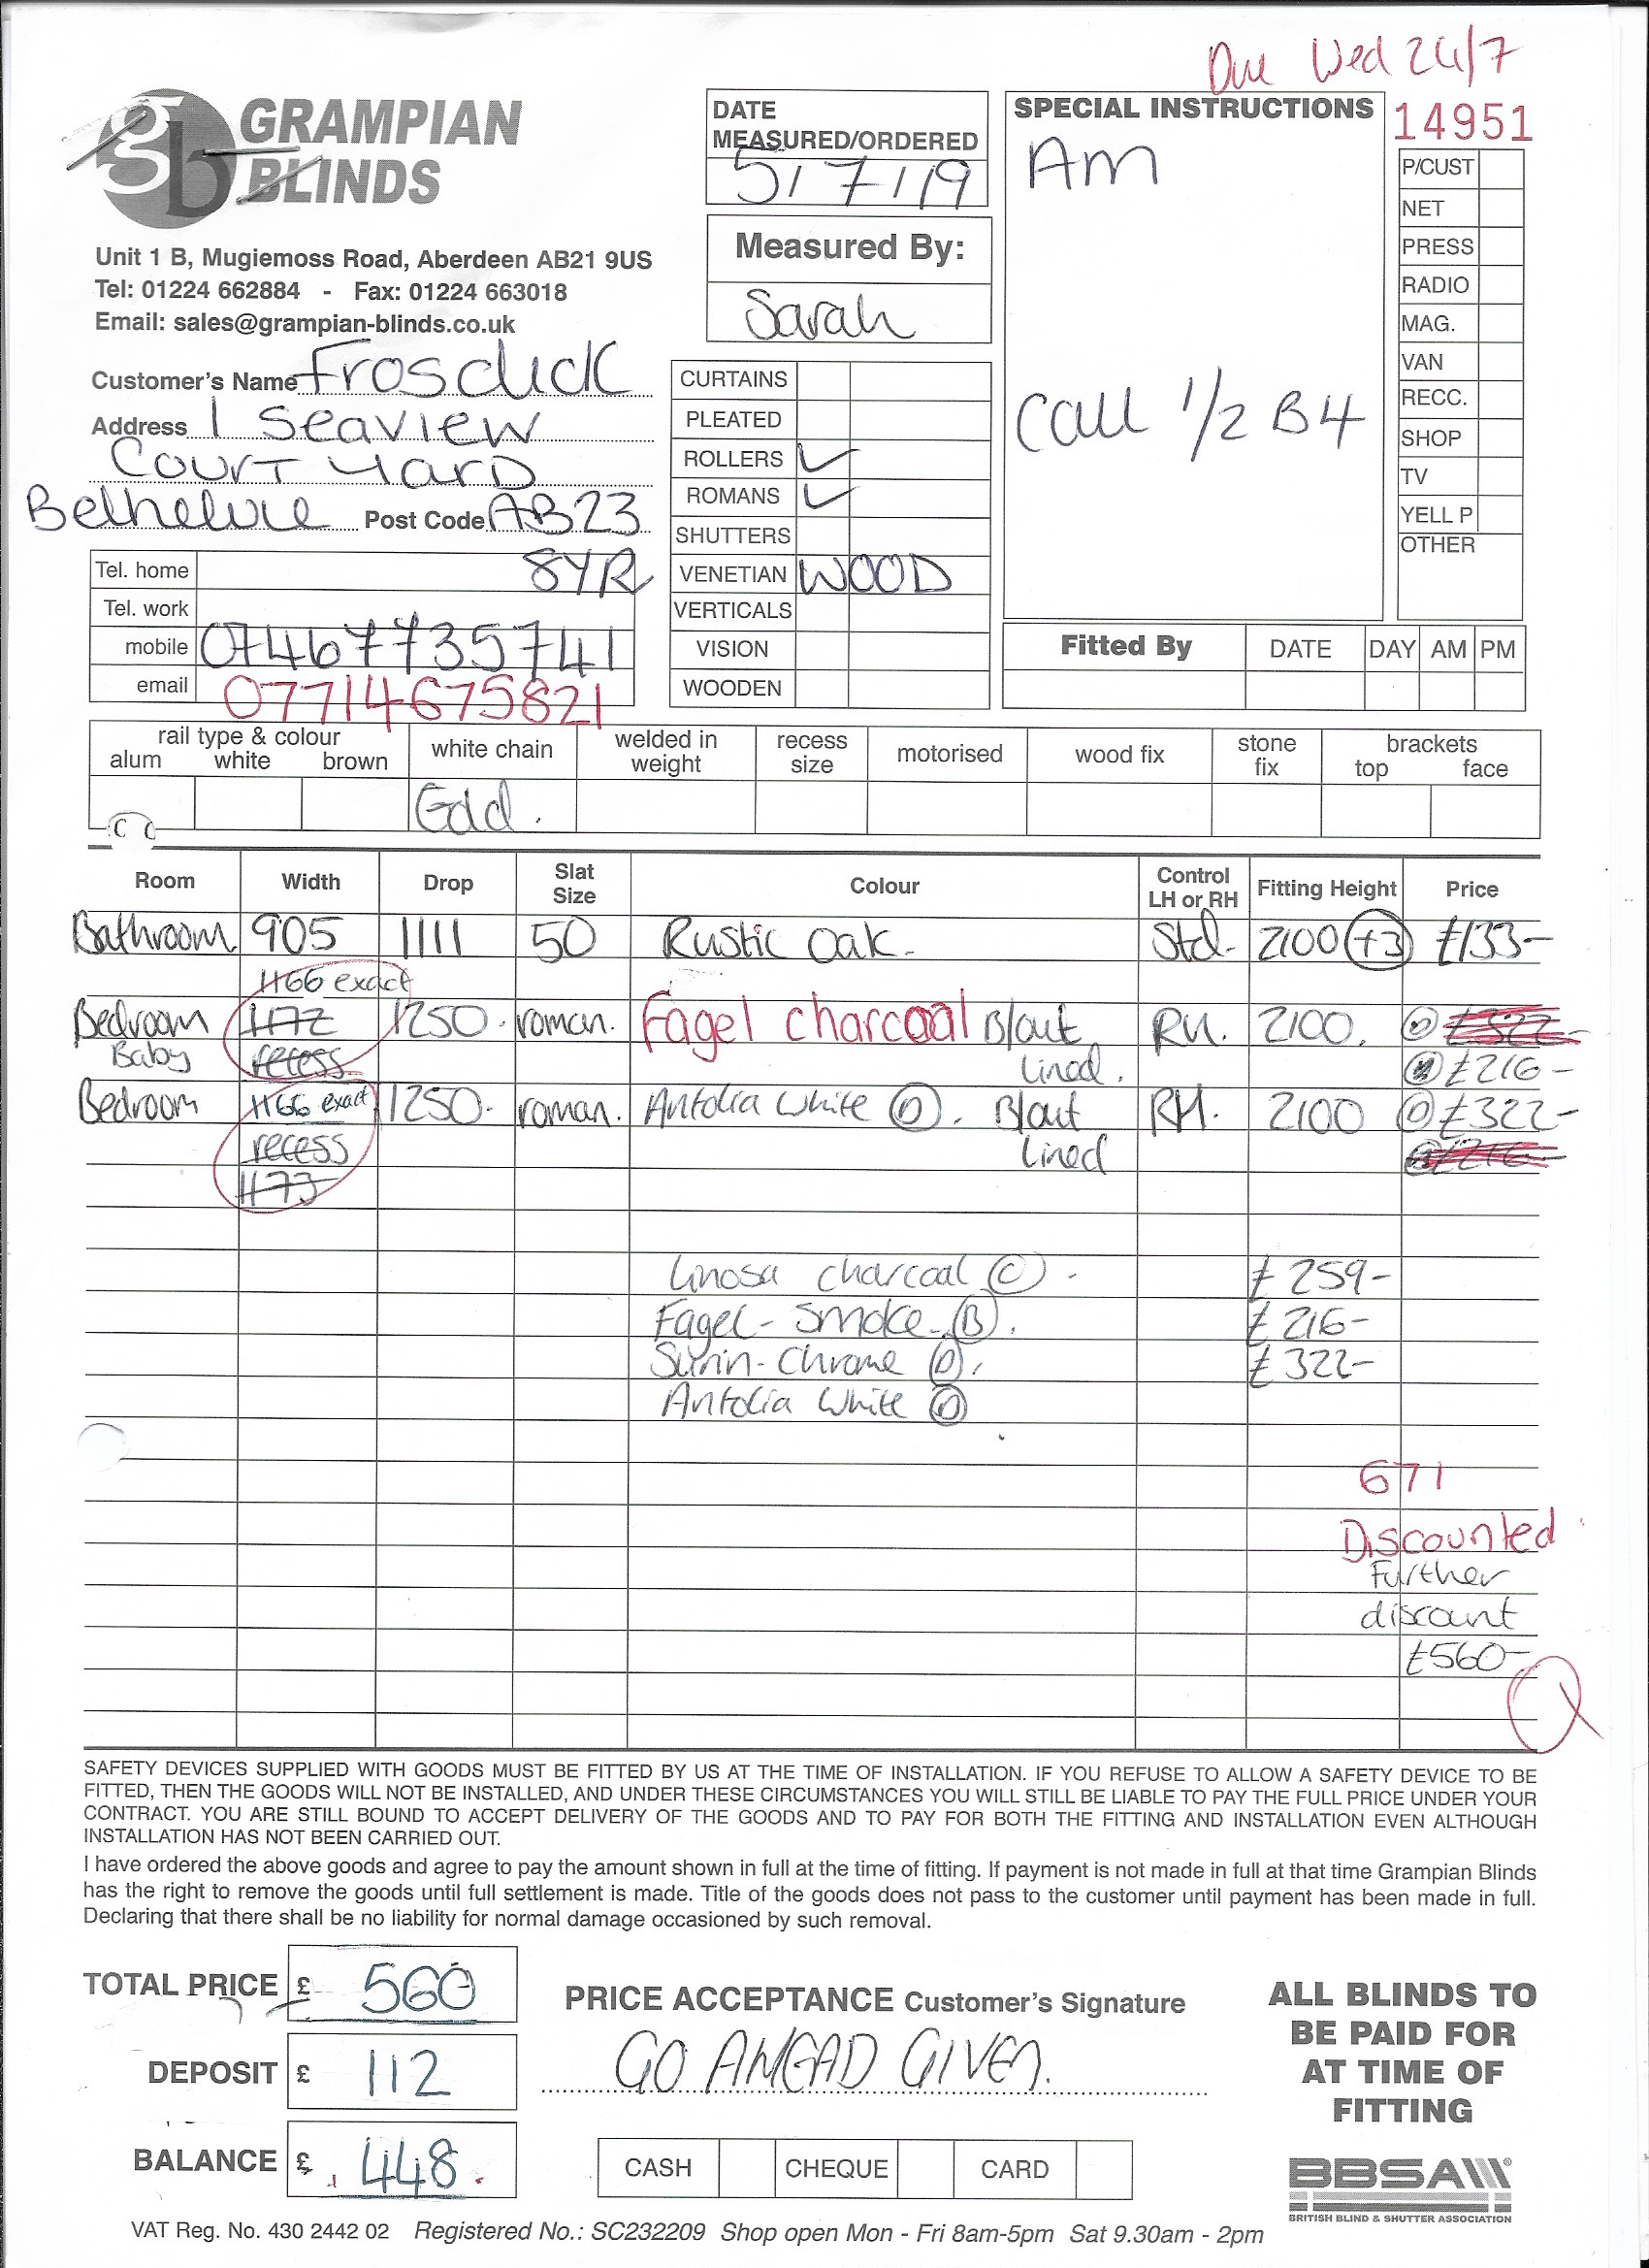 Due Wed 24/7
GRAMPIAN
BLINDS
gb
Unit 1 B, Mugiemoss Road, Aberdeen AB21 9US
Tel: 01224 662884 - Fax: 01224 663018
Email: sales@grampian-blinds.co.uk
DATE
MEASURED/ORDERED
5/7/19
Measured By:
Sarah
SPECIAL INSTRUCTIONS
AM
Call 1/2 B4
14951
P/CUST
NET
PRESS
RADIO
MAG.
VAN
RECC.
SHOP
TV
YELL P
OTHER
Customer's Name Frosdick
Address 1 Seaview
Court Yard
Belhelvie Post Code AB23
8YR
Tel. home
Tel. work
mobile 07467735741
email 07714675821
CURTAINS
PLEATED
ROLLERS ✓
ROMANS ✓
SHUTTERS
VENETIAN WOOD
VERTICALS
VISION
WOODEN
Fitted By DATE DAY AM PM
rail type & colour
alum white brown
white chain
welded in weight
recess size
motorised
wood fix
stone fix
brackets
top face
Room Width Drop Slat Size Colour Control LH or RH Fitting Height Price
Bathroom 905 1111 50 Rustic Oak Std. 2100 +3 £133-
1166 exact
Bedroom 1172 1250. roman. Fagel charcoal Blout RH. 2100. D £322-
Baby recess Lined. B £216-
Bedroom 1166 exact 1250. roman. Antolia White D. Blout RH. 2100 D £322-
recess Lined B £216-
1173
Linosa charcoal C. £259-
Fagel- Smoke- B. £216-
Surin- Chrome D. £322-
Antolia White D
671
Discounted
Further
discount
£560-
SAFETY DEVICES SUPPLIED WITH GOODS MUST BE FITTED BY US AT THE TIME OF INSTALLATION. IF YOU REFUSE TO ALLOW A SAFETY DEVICE TO BE
FITTED, THEN THE GOODS WILL NOT BE INSTALLED, AND UNDER THESE CIRCUMSTANCES YOU WILL STILL BE LIABLE TO PAY THE FULL PRICE UNDER YOUR
CONTRACT. YOU ARE STILL BOUND TO ACCEPT DELIVERY OF THE GOODS AND TO PAY FOR BOTH THE FITTING AND INSTALLATION EVEN ALTHOUGH
INSTALLATION HAS NOT BEEN CARRIED OUT.
I have ordered the above goods and agree to pay the amount shown in full at the time of fitting. If payment is not made in full at that time Grampian Blinds
has the right to remove the goods until full settlement is made. Title of the goods does not pass to the customer until payment has been made in full.
Declaring that there shall be no liability for normal damage occasioned by such removal.
TOTAL PRICE £ 560
DEPOSIT £ 112
BALANCE £ 448.
PRICE ACCEPTANCE Customer's Signature
GO AHEAD GIVEN.
CASH CHEQUE CARD
ALL BLINDS TO
BE PAID FOR
AT TIME OF
FITTING
BBSA
BRITISH BLIND & SHUTTER ASSOCIATION
VAT Reg. No. 430 2442 02 Registered No.: SC232209 Shop open Mon - Fri 8am-5pm Sat 9.30am - 2pm